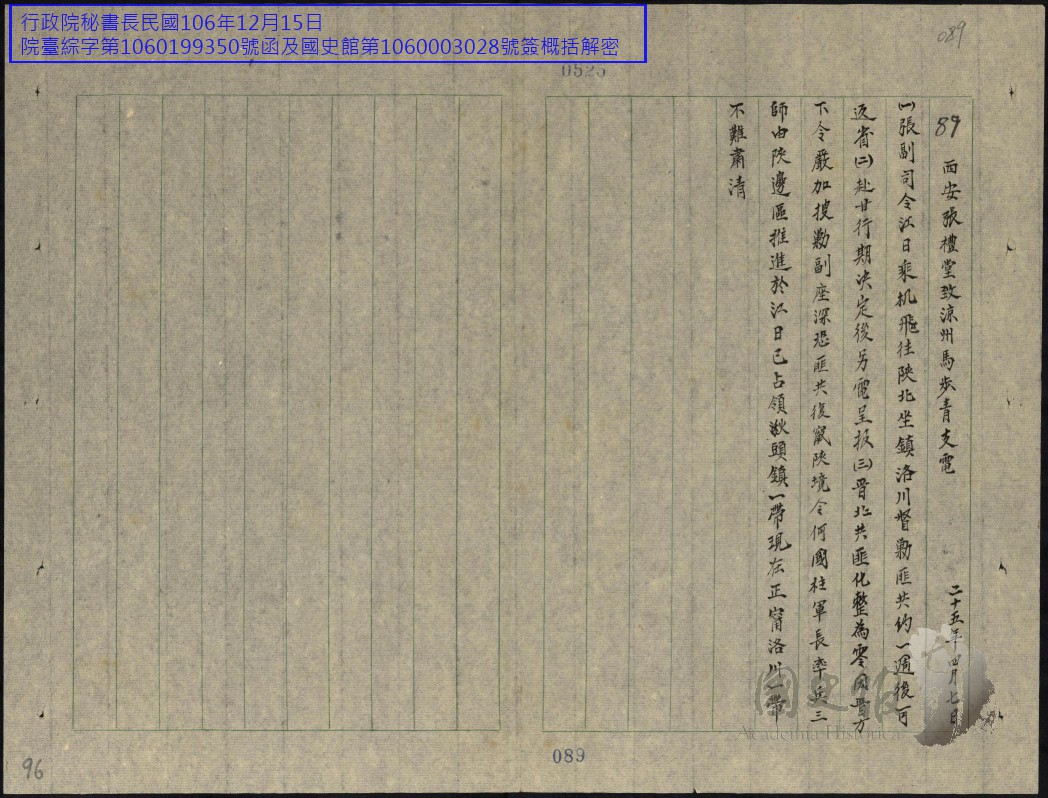 行政院秘書長民國106年12月15日
院臺綜字第1060199350號函及國史館第1060003028號簽概括解密
089
0525
89 西安張禮堂致涼州馬步青支電 二十五年四月七日
㈠張副司令江日乘机飛往陝北坐鎮洛川督剿匪共約一週後可
返省㈡赴甘行期決定後另電呈报㈢晋北共匪化整為零因晋方
下令嚴加搜剿副座深恐匪共復竄陝境令何國柱軍長率兵三
師由陝邊區推進於江日已占領湫頭鎮一帶現在正甯洛川一帶
不難肅清
國史館
Academia Historica
089
96